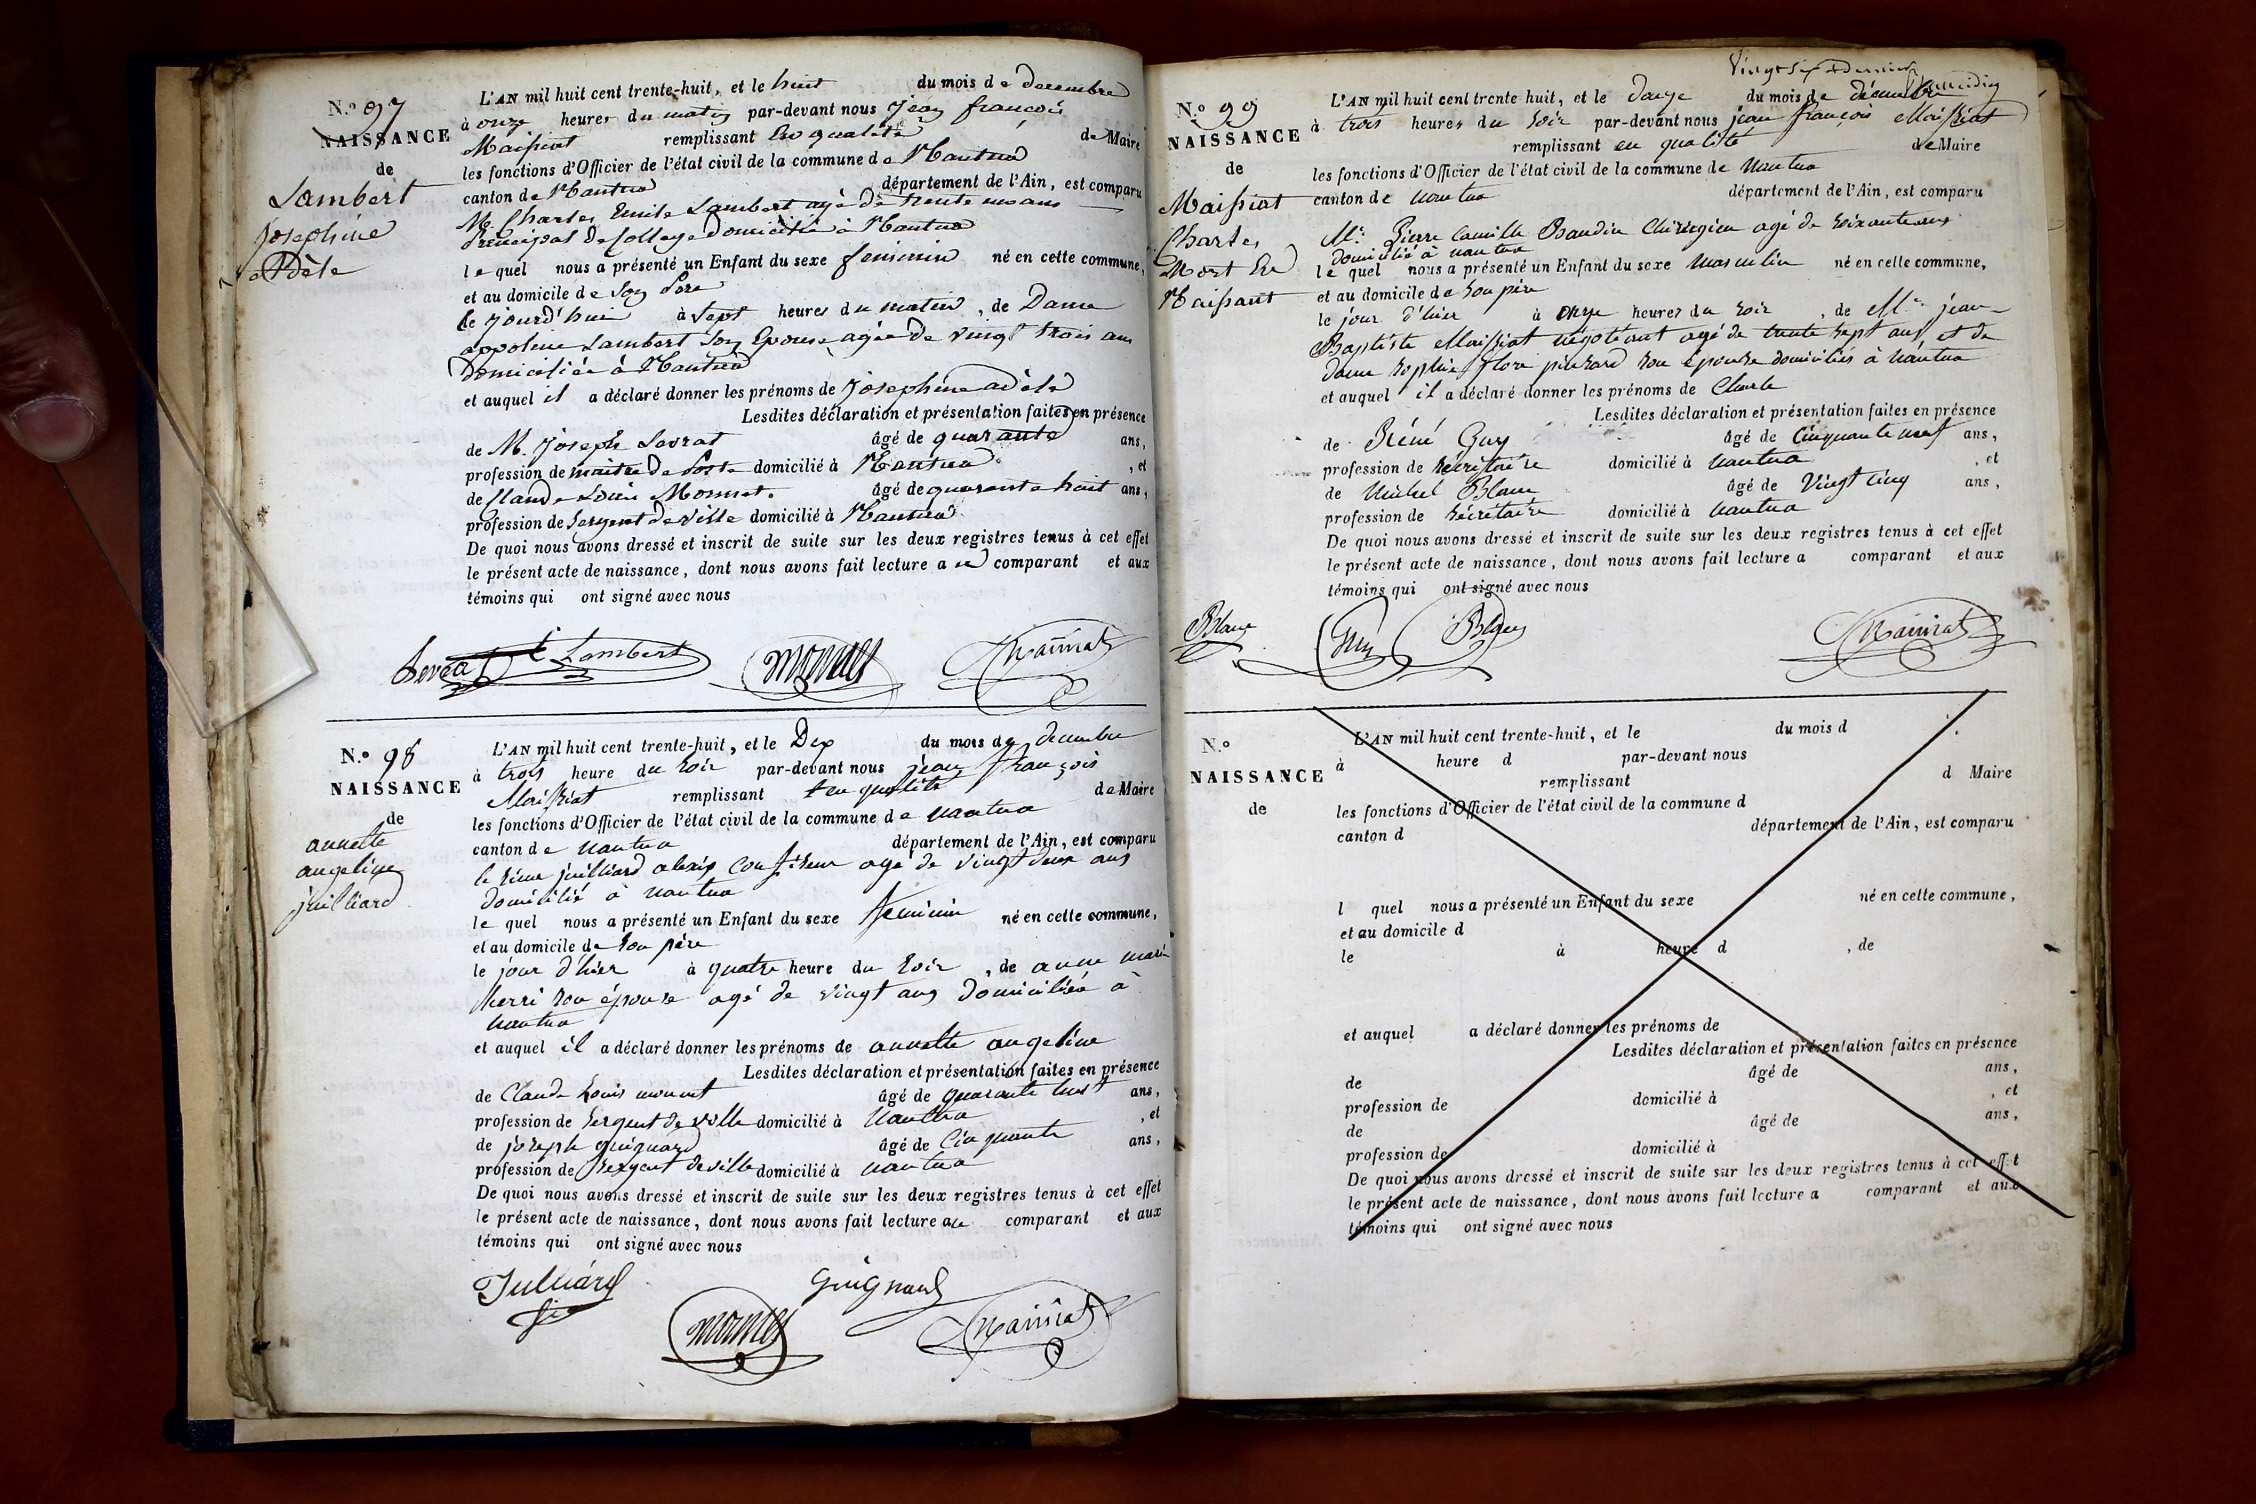 N.º 97
NAISSANCE
de
Lambert
Josephine
Adèle
L'AN mil huit cent trente-huit, et le huit du mois de decembre
à onze heures du matin par-devant nous Jean françois
Maissiat remplissant En qualité de Maire
les fonctions d'Officier de l'état civil de la commune de Nantua
canton de Nantua département de l'Ain, est comparu
M. Charles Emile Lambert agé de trente ans
Principal de College domicilié à Nantua
le quel nous a présenté un Enfant du sexe feminin né en cette commune,
et au domicile de Son Pere
le jourd'hui à Sept heures du matin, de Dame
appoline Lambert Son Epouse, agée de vingt trois ans
Domiciliée à Nantua
et auquel il a déclaré donner les prénoms de Josephine adèle
Lesdites déclaration et présentation faites en présence
de M. Joseph Levrat âgé de quarante ans,
profession de maitre de Poste domicilié à Nantua, et
de Claude Louis Monnet. âgé de quarante huit ans,
profession de Sergent de ville domicilié à Nantua
De quoi nous avons dressé et inscrit de suite sur les deux registres tenus à cet effet
le présent acte de naissance, dont nous avons fait lecture a comparant et aux
témoins qui ont signé avec nous
Levrat E Lambert monnet Maissiat
N.º 98
NAISSANCE
de
annette
angeline
juilliard
L'AN mil huit cent trente-huit, et le Dix du mois de decembre
à trois heure du soir par-devant nous jean françois
Maissiat remplissant en qualité de Maire
les fonctions d'Officier de l'état civil de la commune de nantua
canton de nantua département de l'Ain, est comparu
le sieur juilliard alexis confiseur agé de vingt deux ans
domicilié à nantua
le quel nous a présenté un Enfant du sexe feminin né en cette commune,
et au domicile de son père
le jour d'hier à quatre heure du soir, de anne marie
son épouse agé de vingt ans domiciliée à
nantua
et auquel il a déclaré donner les prénoms de annette angeline
Lesdites déclaration et présentation faites en présence
de Claude Louis monnet âgé de quarante huit ans,
profession de Sergent de ville domicilié à nantua, et
de joseph guignard âgé de Cinquante ans,
profession de Sergent de ville domicilié à nantua
De quoi nous avons dressé et inscrit de suite sur les deux registres tenus à cet effet
le présent acte de naissance, dont nous avons fait lecture au comparant et aux
témoins qui ont signé avec nous
Julliard Guignard
monnet Maissiat
N.º 99
NAISSANCE
de
Maissiat
Charles
Mort En
Naissant
L'AN mil huit cent trente-huit, et le du mois de décembre
à trois heures du soir par-devant nous jean françois Maissiat
remplissant en qualité de Maire
les fonctions d'Officier de l'état civil de la commune de nantua
canton de nantua département de l'Ain, est comparu
Mr. Pierre Camille Baudin Chirurgien agé de soixante ans
domicilié à nantua
le quel nous a présenté un Enfant du sexe masculin né en cette commune,
et au domicile de son père
le jour d'hier à onze heures du soir, de Mr. jean
Baptiste Maissiat négotiant agé de trente sept ans et de
dame sophie flore son épouse domiciliés à nantua
et auquel il a déclaré donner les prénoms de Charle
Lesdites déclaration et présentation faites en présence
de Réné Guy âgé de Cinquante neuf ans,
profession de sécretaire domicilié à nantua, et
de Michel Blanc âgé de Vingt cinq ans,
profession de sécretaire domicilié à nantua
De quoi nous avons dressé et inscrit de suite sur les deux registres tenus à cet effet
le présent acte de naissance, dont nous avons fait lecture a comparant et aux
témoins qui ont signé avec nous
Blanc Maissiat
N.º
NAISSANCE
de
L'AN mil huit cent trente-huit, et le du mois d
à heure d par-devant nous
remplissant d Maire
les fonctions d'Officier de l'état civil de la commune d
canton d département de l'Ain, est comparu
l quel nous a présenté un Enfant du sexe né en cette commune,
et au domicile d
le à heure d , de
et auquel a déclaré donner les prénoms de
Lesdites déclaration et présentation faites en présence
de âgé de ans,
profession de domicilié à , et
de âgé de ans,
profession de domicilié à
De quoi nous avons dressé et inscrit de suite sur les deux registres tenus à cet effet
le présent acte de naissance, dont nous avons fait lecture a comparant et aux
témoins qui ont signé avec nous